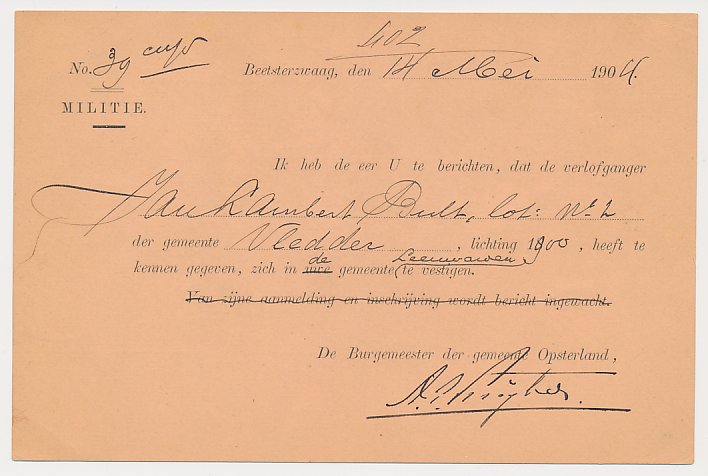 402
No. 39 Beetsterzwaag, den 14 Mei 1904.
MILITIE.
Ik heb de eer U te berichten, dat de verlofganger
Jan Lambert Bult, lot: No. 2
der gemeente Vledder, lichting 1900, heeft te
kennen gegeven, zich in uwe de gemeente Leeuwarden te vestigen.
Van zijne aanmelding en inschrijving wordt bericht ingewacht.
De Burgemeester der gemeente Opsterland,